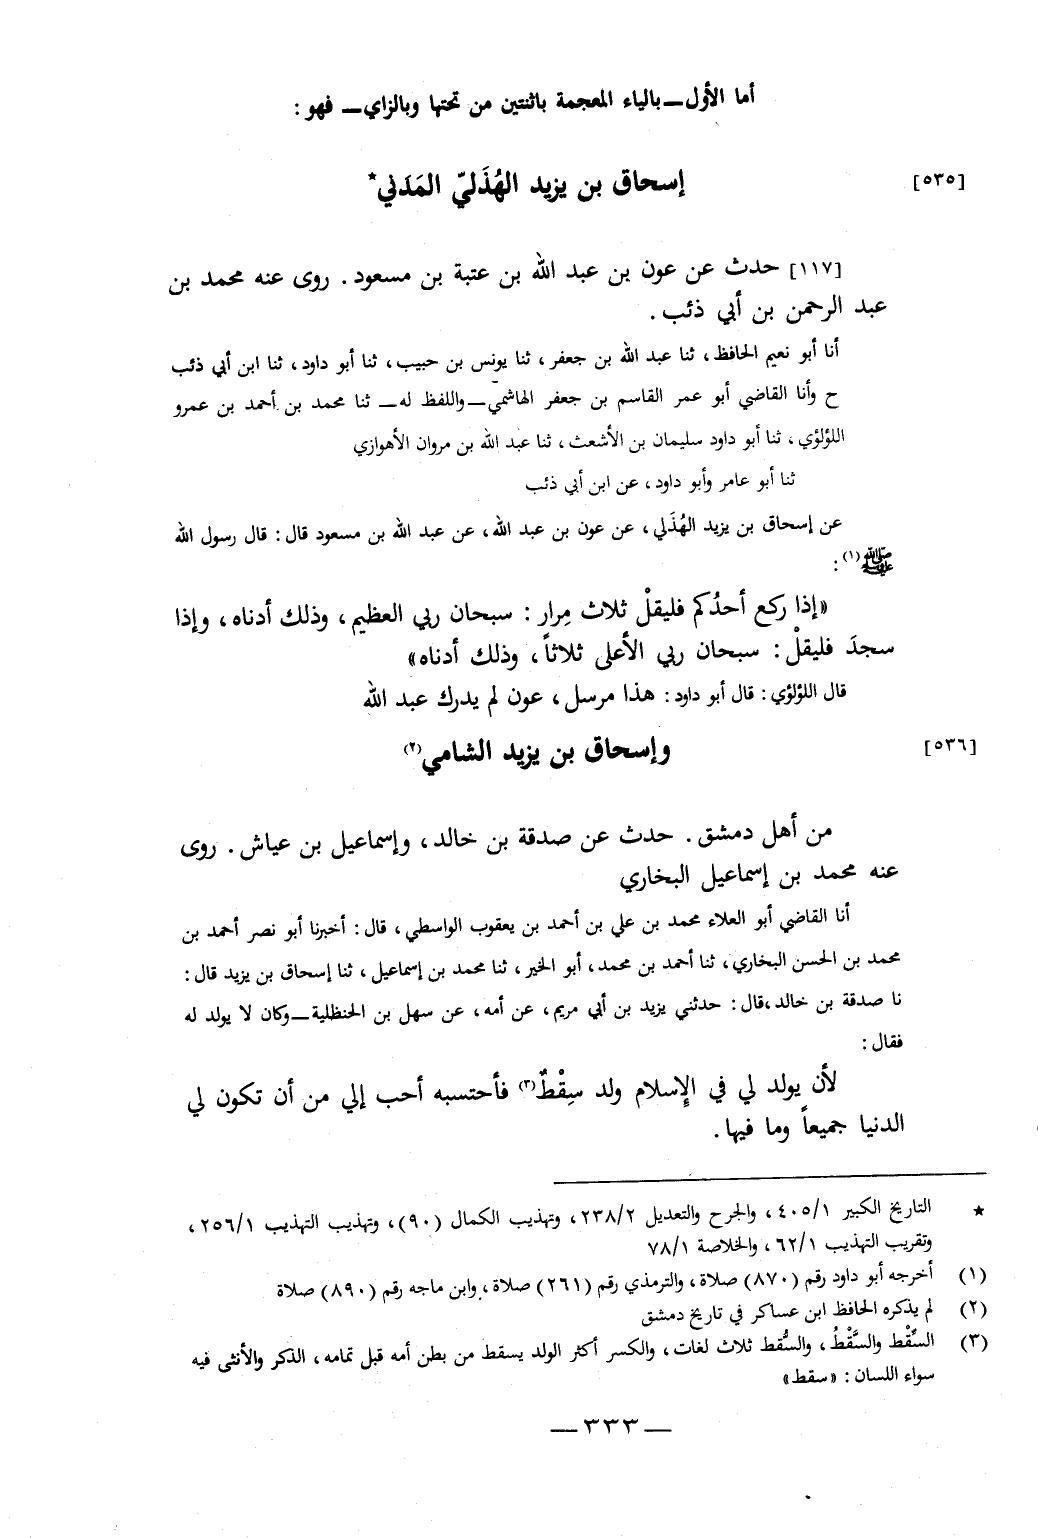 أما الأول ــ بالياء المعجمة باثنتين من تحتها وبالزاي ــ فهو :
[٥٣٥] إسحاق بن يزيد الهُذَليّ المَدَني*
[١١٧] حدث عن عون بن عبد الله بن عتبة بن مسعود . روى عنه محمد بن
عبد الرحمن بن أبي ذئب .
أنا أبو نعيم الحافظ ، ثنا عبد الله بن جعفر ، ثنا يونس بن حبيب ، ثنا أبو داود ، ثنا ابن أبي ذئب
ح وأنا القاضي أبو عمر القاسم بن جعفر الهاشمي ــ واللفظ له ــ ثنا محمد بن أحمد بن عمرو
اللؤلؤي ، ثنا أبو داود سليمان بن الأشعث ، ثنا عبد الله بن مروان الأهوازي
ثنا أبو عامر وأبو داود ، عن ابن أبي ذئب
عن إسحاق بن يزيد الهُذَلي ، عن عون بن عبد الله ، عن عبد الله بن مسعود قال : قال رسول الله
ﷺ(١) :
«إذا ركع أحدُكم فليقلْ ثلاث مِرار : سبحان ربي العظيم ، وذلك أدناه ، وإذا
سجدَ فليقلْ : سبحان ربي الأعلى ثلاثاً ، وذلك أدناه»
قال اللؤلؤي : قال أبو داود : هذا مرسل ، عون لم يدرك عبد الله
[٥٣٦] وإسحاق بن يزيد الشامي(٢)
من أهل دمشق . حدث عن صدقة بن خالد ، وإسماعيل بن عياش . روى
عنه محمد بن إسماعيل البخاري
أنا القاضي أبو العلاء محمد بن علي بن أحمد بن يعقوب الواسطي ، قال : أخبرنا أبو نصر أحمد بن
محمد بن الحسن البخاري ، ثنا أحمد بن محمد ، أبو الخير ، ثنا محمد بن إسماعيل ، ثنا إسحاق بن يزيد قال :
نا صدقة بن خالد ،قال : حدثني يزيد بن أبي مريم ، عن أمه ، عن سهل بن الحنظلية ــ وكان لا يولد له
فقال :
لأن يولد لي في الإسلام ولد سِقْطٌ(٣) فأحتسبه أحب إلي من أن تكون لي
الدنيا جميعاً وما فيها .
★ التاريخ الكبير ٤٠٥/١ ، والجرح والتعديل ٢٣٨/٢ ، وتهذيب الكمال (٩٠) ، وتهذيب التهذيب ٢٥٦/١ ،
وتقريب التهذيب ٦٢/١ ، والخلاصة ٧٨/١
(١) أخرجه أبو داود رقم (٨٧٠) صلاة ، والترمذي رقم (٢٦١) صلاة ، وابن ماجه رقم (٨٩٠) صلاة
(٢) لم يذكره الحافظ ابن عساكر في تاريخ دمشق
(٣) السِّقْط والسَّقْطُ ، والسُّقط ثلاث لغات ، والكسر أكثر الولد يسقط من بطن أمه قبل تمامه ، الذكر والأنثى فيه
سواء اللسان : «سقط»
ــ ٣٣٣ ــ